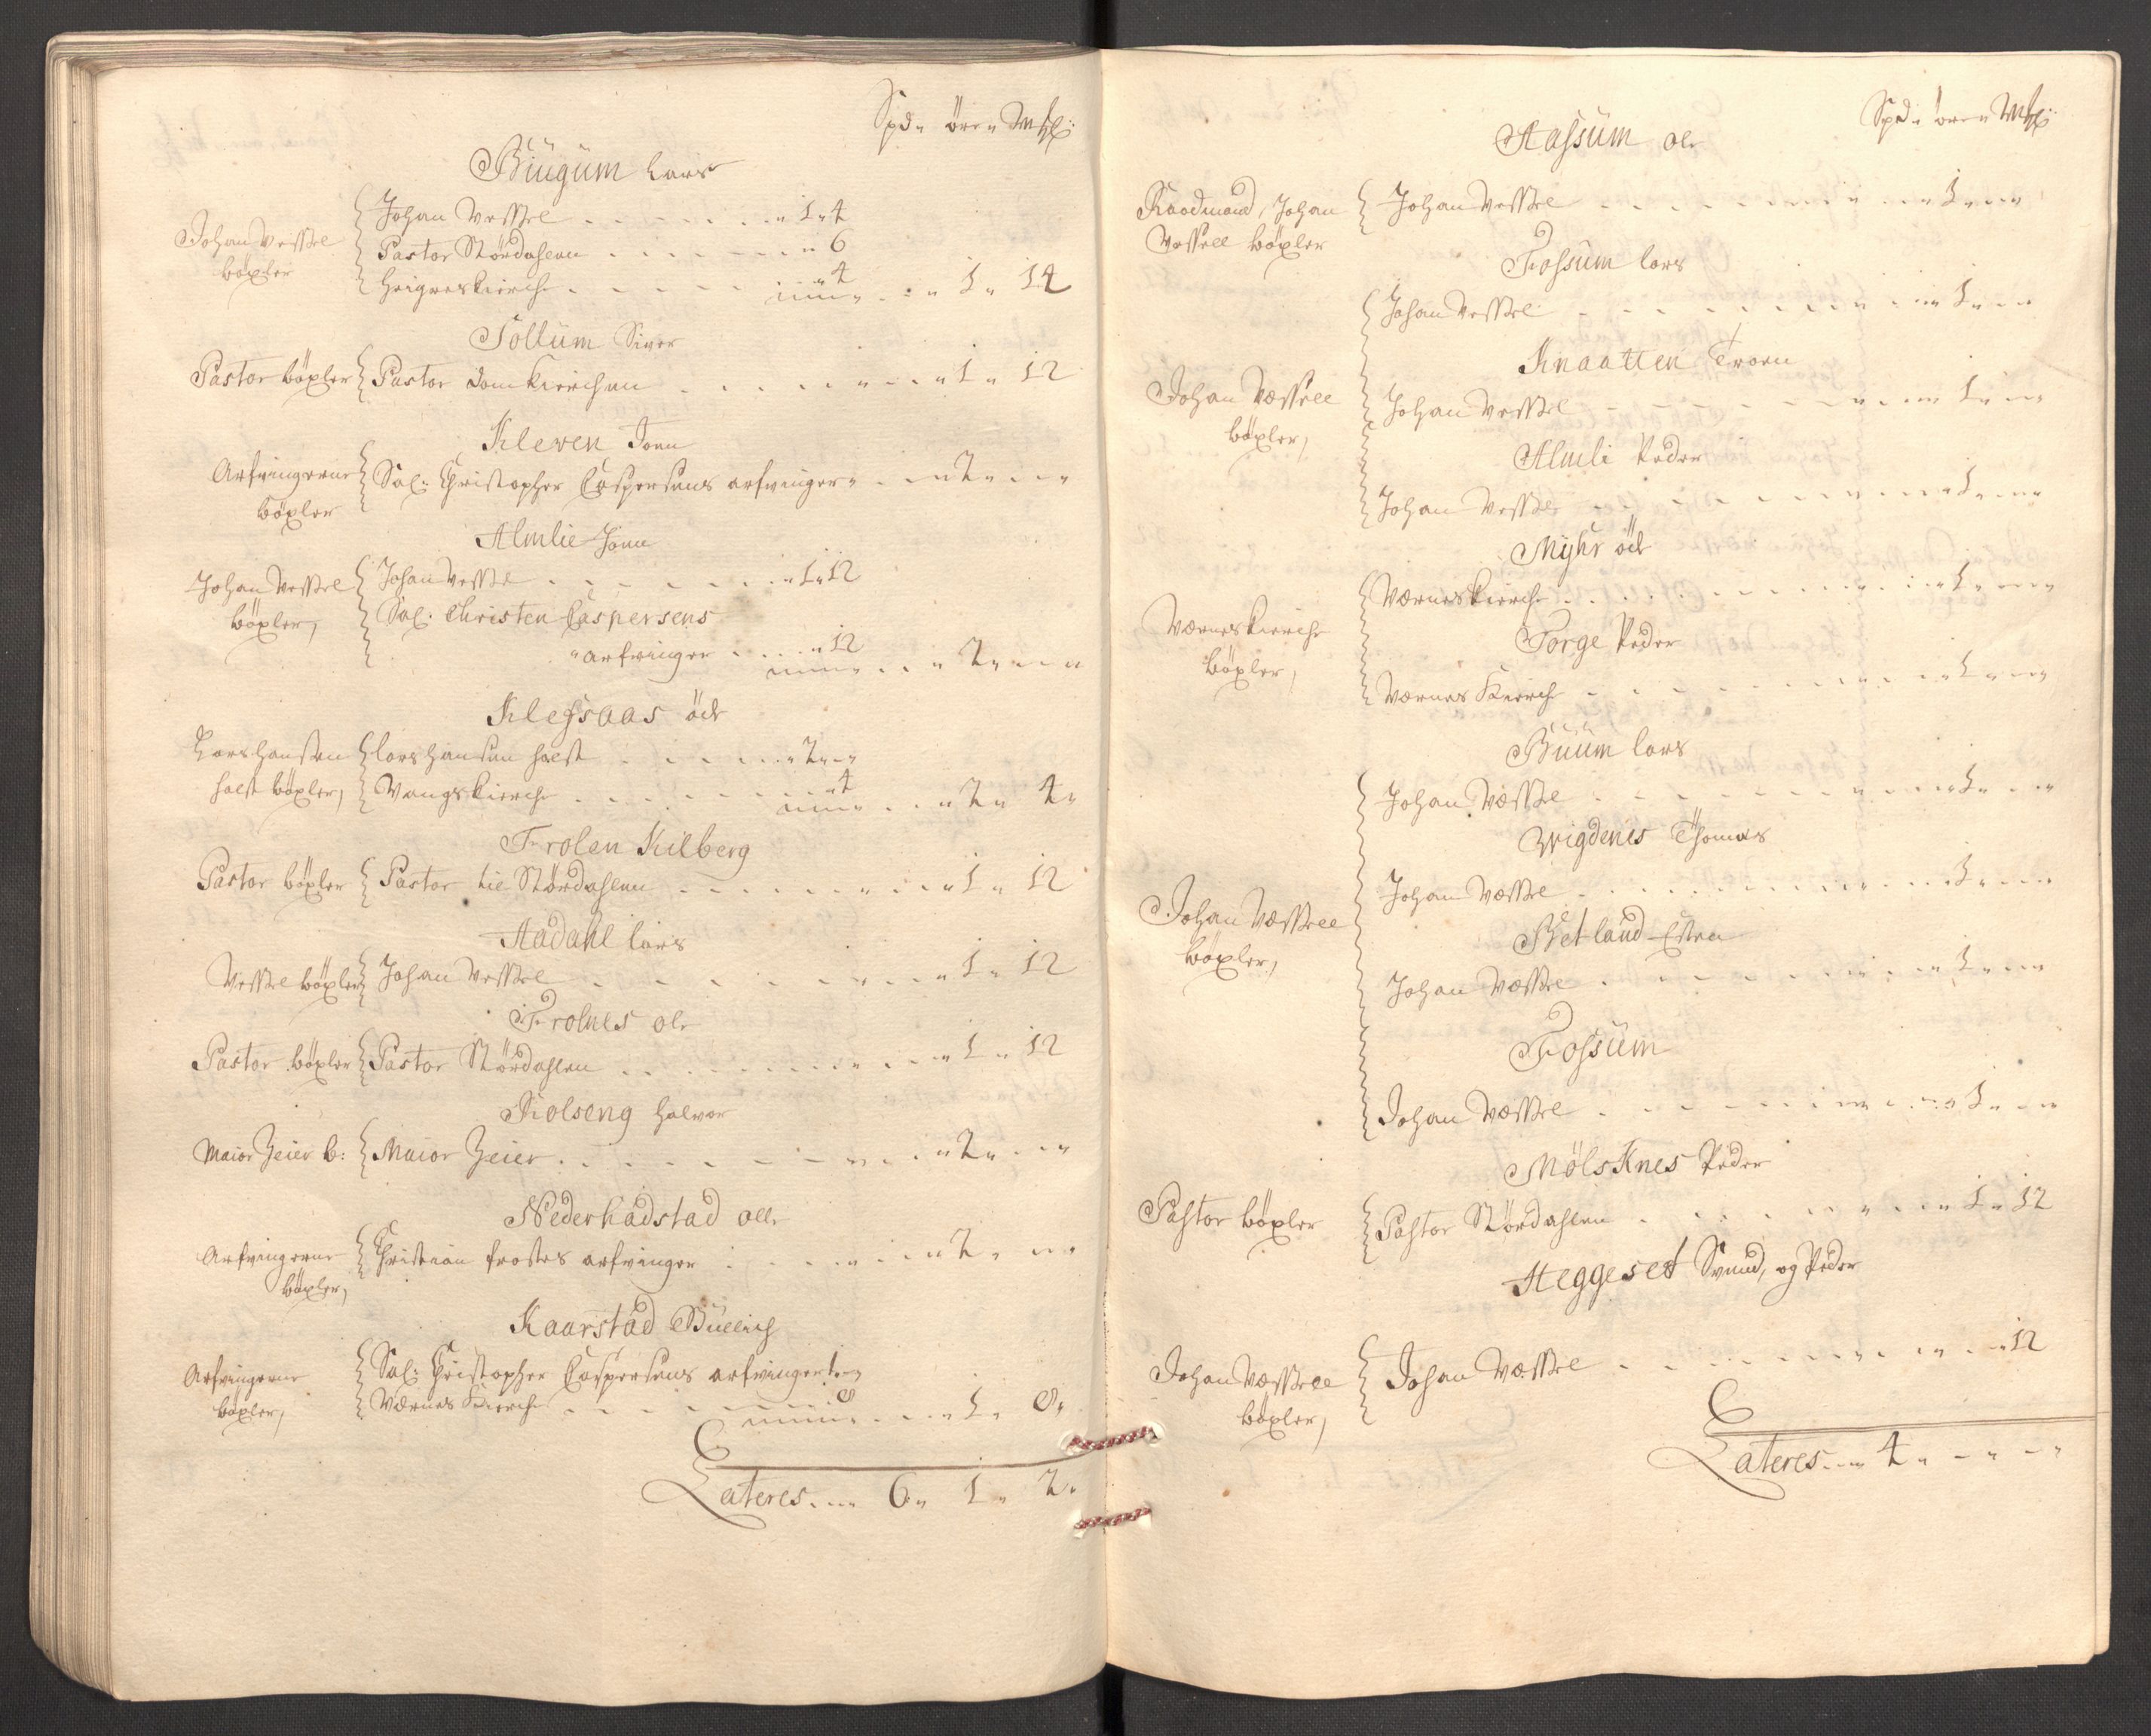 Spd„ öre„ Mkl:
Biugum Lars
Johan Vessel böxler
Johan Vessel . . . . . „ 1 „ 4
Pastor Størdahlen . . . . . „ 6
Heigreskirche . . . . . „ 4 . . . „ 1 „ 14
Sollum Siver
Pastor böxler Pastor Domkirchen . . . . . „ 1 „ 12
Kleven Joen
Arfvingerne böxler
Sal: Christopher Caspersens arfvinger „ . . „ 2 „ - „
Almlie Joen
Johan Vessel böxler,
Johan Vessel . . . . . „ 1 „ 12
Sal: Christen Caspersens
„ arfvinger . . . . „ 12 . . . „ 2 „ - „
Klefsaas öde
Lars Hansen holst böxler,
Lars Hansen holst . . . . . „ 2 „ - „
Vangskirche . . . . . „ 4 . . . „ 2 „ 4 „
Trolen Kilberg
Pastor böxler Pastor til Størdahlen . . . . . „ 1 „ 12
Aadahl Lars
Vessel böxler Johan Vessel . . . . . „ 1 „ 12
Frolnes ole
Pastor böxler Pastor Størdahlen . . . . . „ 1 „ 12
Kolseng Halvor
Maior Zeier b: Maior Zeier . . . . . „ 2 „ - „
Nederhådstad olle
Arfvingerne böxler,
Christian frostes arfvinger . . . . . „ 2 „ - „
Kaarstad
Arfvingerne böxler,
Sal: Christopher Caspersens arfvinger 1 „ - „
Værnes Kirche . . . . . 8 . . . „ 1 „ 8 „
Lateres . . . 6 „ 1 „ 2 „
Spd„ öre „ Mkl:
Aassum ole
Raadmand, Johan Vessell böxler
Johan Vessel . . . . . „ 1 „ - „
Fossum Lars
Johan Vessel . . . . . „ 1 „ - „
Knaatten Troen
Johan Væssell böxler,
Johan Vessel . . . . . „ 1 „ - „
Almli Peder
Johan Vessel . . . . . „ 1 „ - „
Myhr öde
Værneskirche . . . . . „ 1 „ - „
Værneskirche böxler,
Torge Peder
Værnes Kirche . . . . . „ 1 „ - „
Buum Lars
Johan Væssel . . . . . „ 1 „ - „
Wigdenes Thomas
Johan Væssel . . . . . „ 1 „ - „
Johan Væssell böxler,
Betland Esten
Johan Væssel . . . . . „ 1 „ - „
Fossum
Johan Væssel . . . . . „ 1 „ - „
Mölsknes Peder
Pastor böxler Pastor Størdahlen . . . . . „ 1 „ 12
Heggeset Svend, og Peder
Johan Væssell böxler,
Johan Væssel . . . . . „ 12
Lateres . . . 4 „ - „ - „